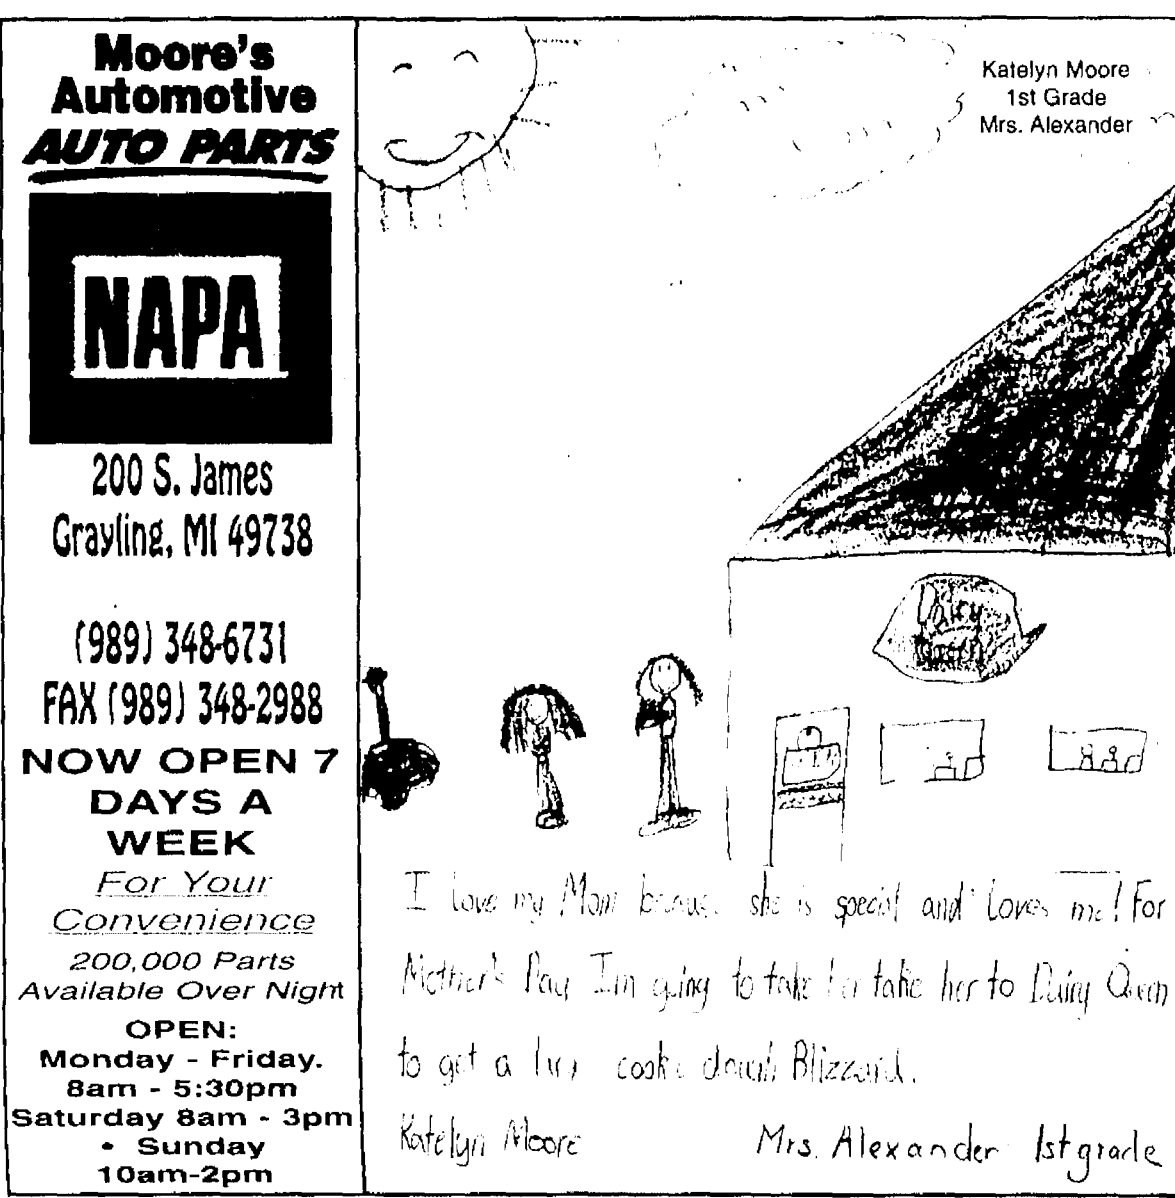 Moore's
Automotive
AUTO PARTS
NAPA
200 S. James
Grayling, MI 49738
(989) 348-6731
FAX (989) 348-2988
NOW OPEN 7
DAYS A
WEEK
For Your
Convenience
200,000 Parts
Available Over Night
OPEN:
Monday - Friday.
8am - 5:30pm
Saturday 8am - 3pm
• Sunday
10am-2pm
Katelyn Moore
1st Grade
Mrs. Alexander
Dairy
Queen
I love my Mom because she is special and loves me! For
Mother's Day I'm going to take her take her to Dairy Queen
to get a cookie dough Blizzard.
Katelyn Moore Mrs. Alexander 1st grade